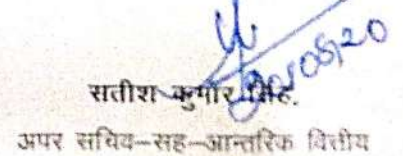 सतीश कुमार सिंह.
अपर सचिव–सह–आन्तरिक वित्तीय